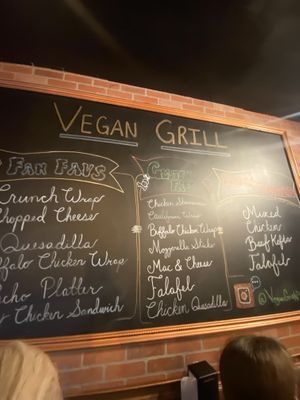 VEGAN GRILL
FAN FAVS
Crunch Wrap
Chopped Cheese
Quesadilla
ffalo Chicken Wrap
cho Platter
Chicken Sandwich
Chicken Shawarma
Cauliflower Wings
Buffalo Chicken Wrap
Mozzarella Sticks
Mac & Cheese
Falafel
Chicken Quesadilla
Mixed
Chicken
Beef Kofta
Falafel